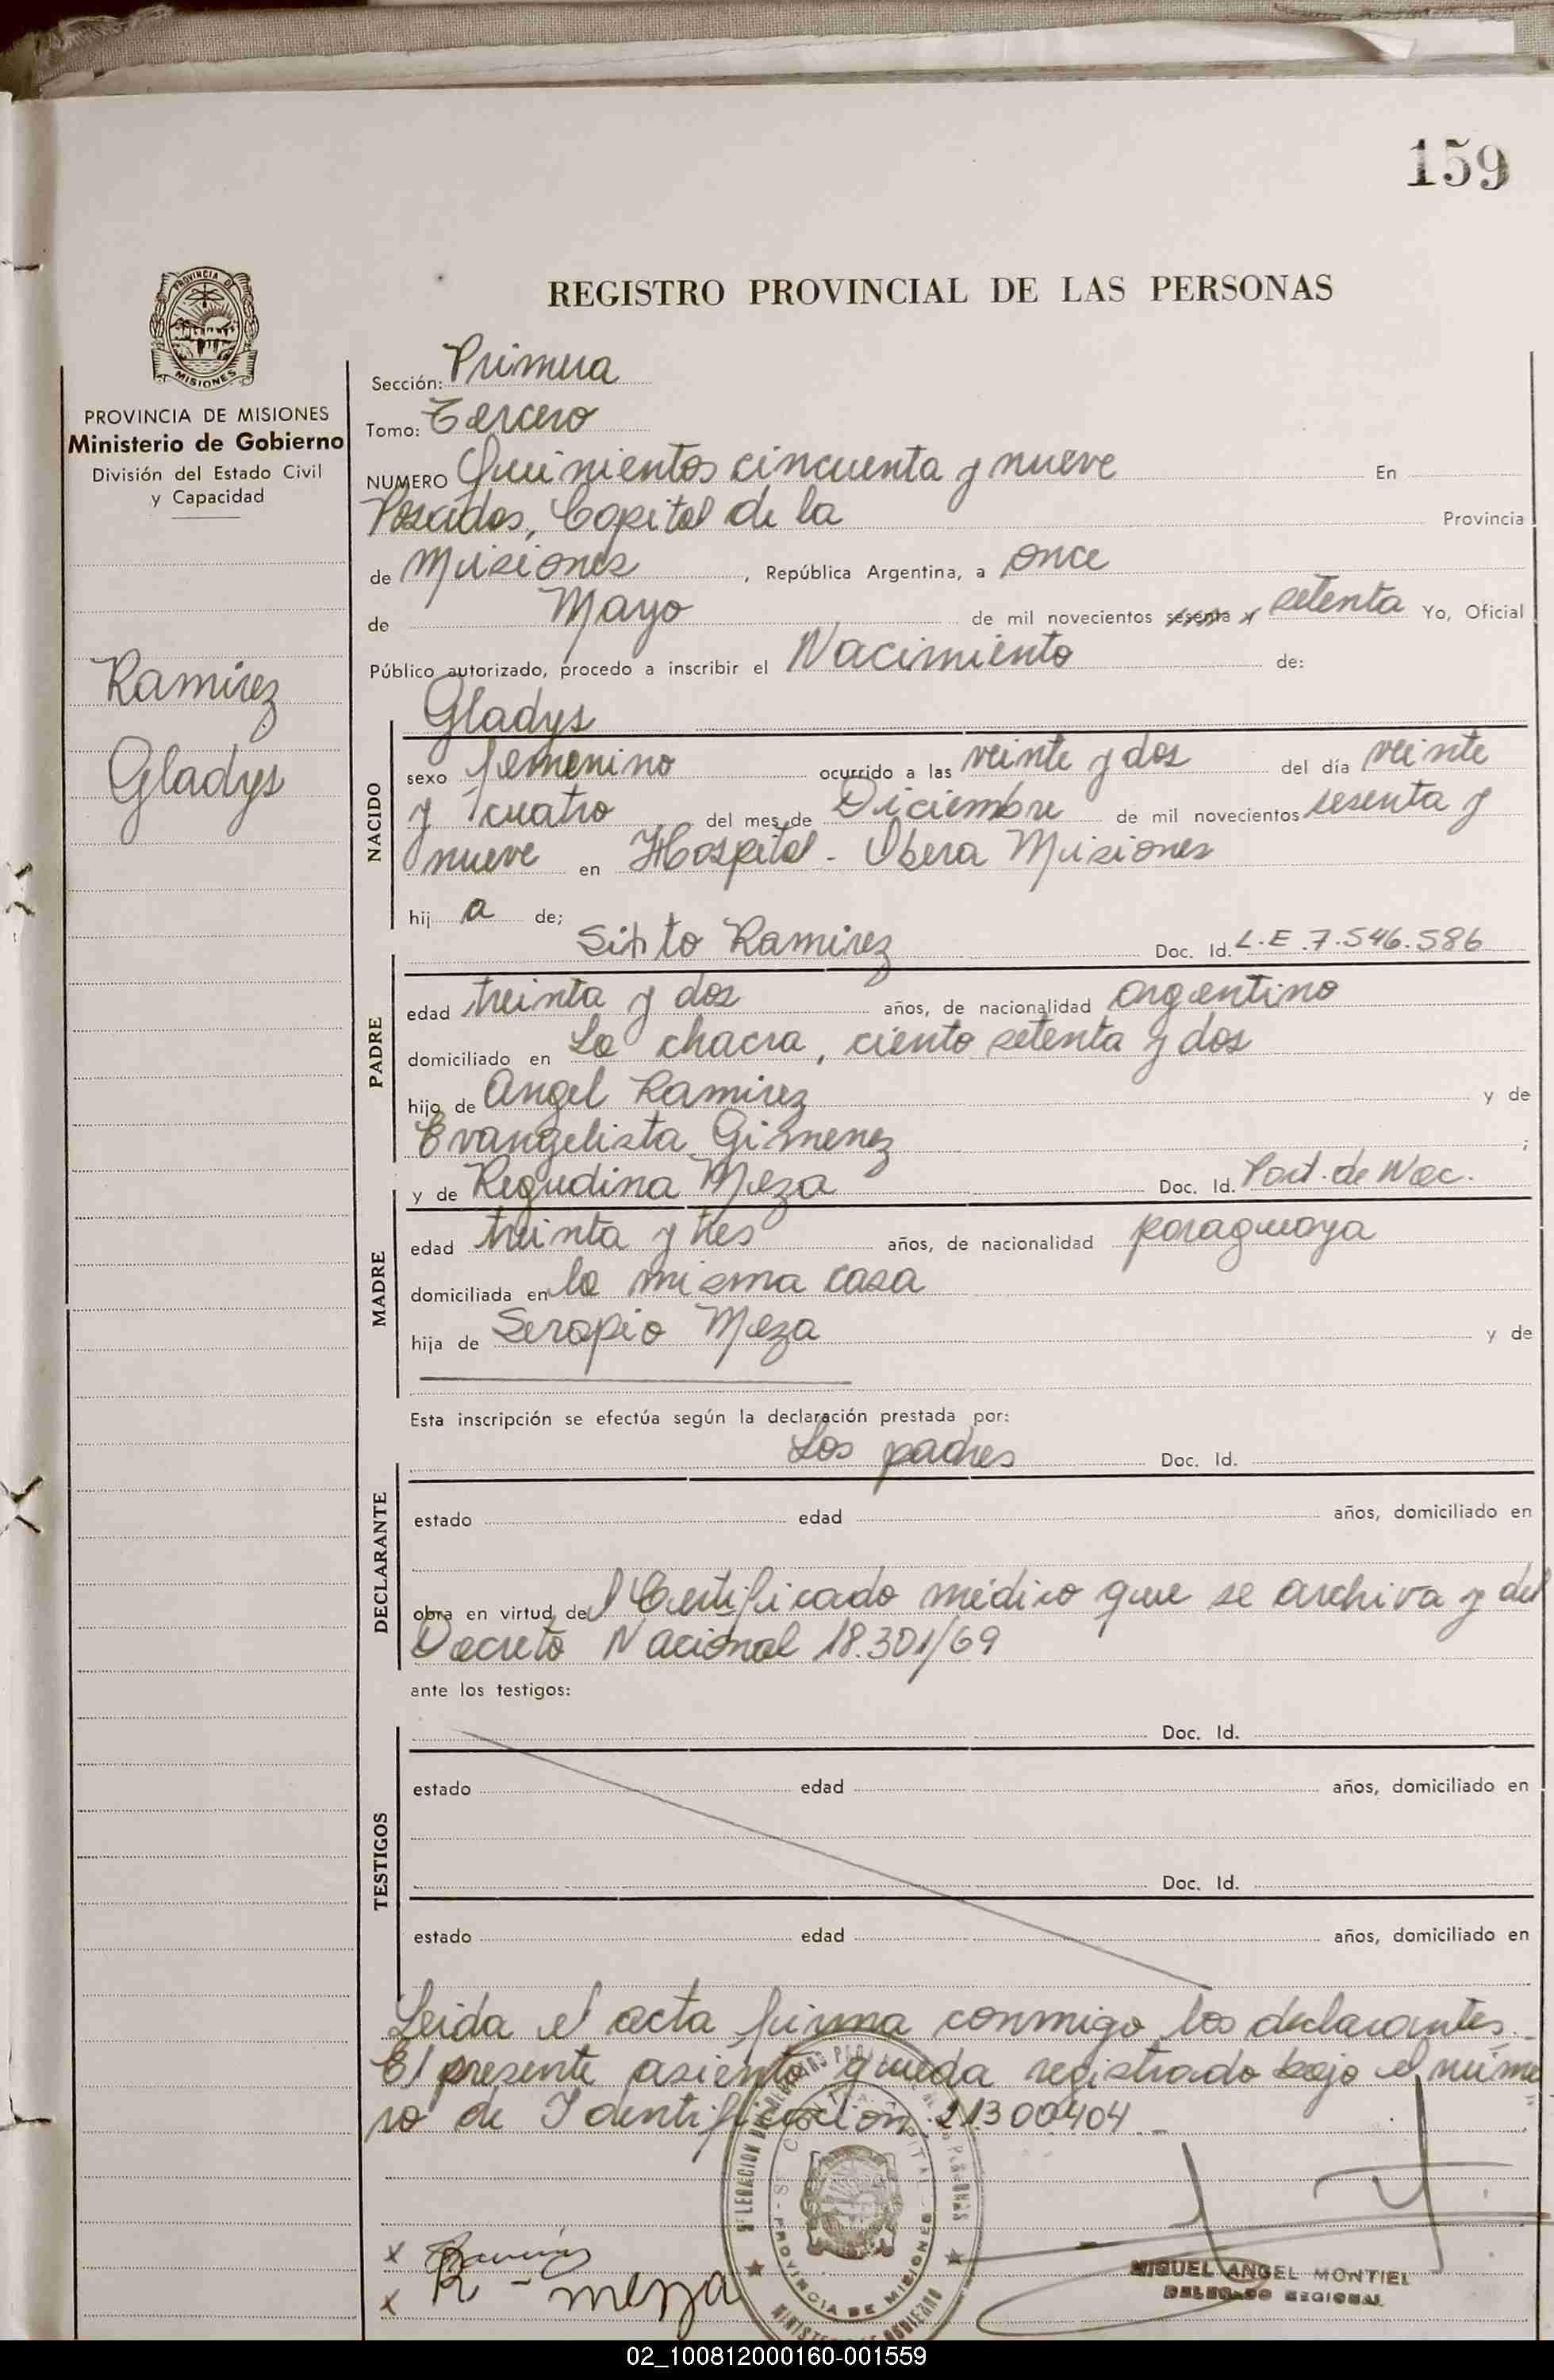 159
REGISTRO PROVINCIAL DE LAS PERSONAS
PROVINCIA DE
MISIONES
PROVINCIA DE MISIONES
Ministerio de Gobierno
División del Estado Civil
y Capacidad
Ramirez
Gladys
Sección: Primera
Tomo: Tercero
NUMERO Quinientos cincuenta y nueve En
Posadas, Capital de la Provincia
de Misiones, República Argentina, a once
de Mayo de mil novecientos sesenta y setenta Yo, Oficial
Público autorizado, procedo a inscribir el Nacimiento de:
Gladys
NACIDO
sexo femenino ocurrido a las veinte y dos del día veinte
y cuatro del mes de Diciembre de mil novecientos sesenta y
nueve en Hospital - Obera Misiones
hij a de;
Sixto Ramirez Doc. Id. L.E 7.546.586
PADRE
edad treinta y dos años, de nacionalidad argentino
domiciliado en La chacra, ciento setenta y dos
hijo de Angel Ramirez y de
Evangelista Gimenez ;
y de Regudina Meza Doc. Id. Part. de Nac.
MADRE
edad treinta y tres años, de nacionalidad paraguaya
domiciliada en la misma casa
hija de Serapio Meza y de
Esta inscripción se efectúa según la declaración prestada por:
Los padres Doc. Id.
DECLARANTE
estado edad años, domiciliado en
obra en virtud del Certificado médico que se archiva y del
Decreto Nacional 18.301/69
ante los testigos:
Doc. Id.
TESTIGOS
estado edad años, domiciliado en
Doc. Id.
estado edad años, domiciliado en
Leida el acta firma conmigo los declarantes.
El presente asiento queda registrado bajo el núme
ro de Identificación 21300404
x Ramirez
x R - meza
PROVINCIA DE MISIONES
MIGUEL ANGEL MONTIEL
DELEGADO REGIONAL
02_100812000160-001559